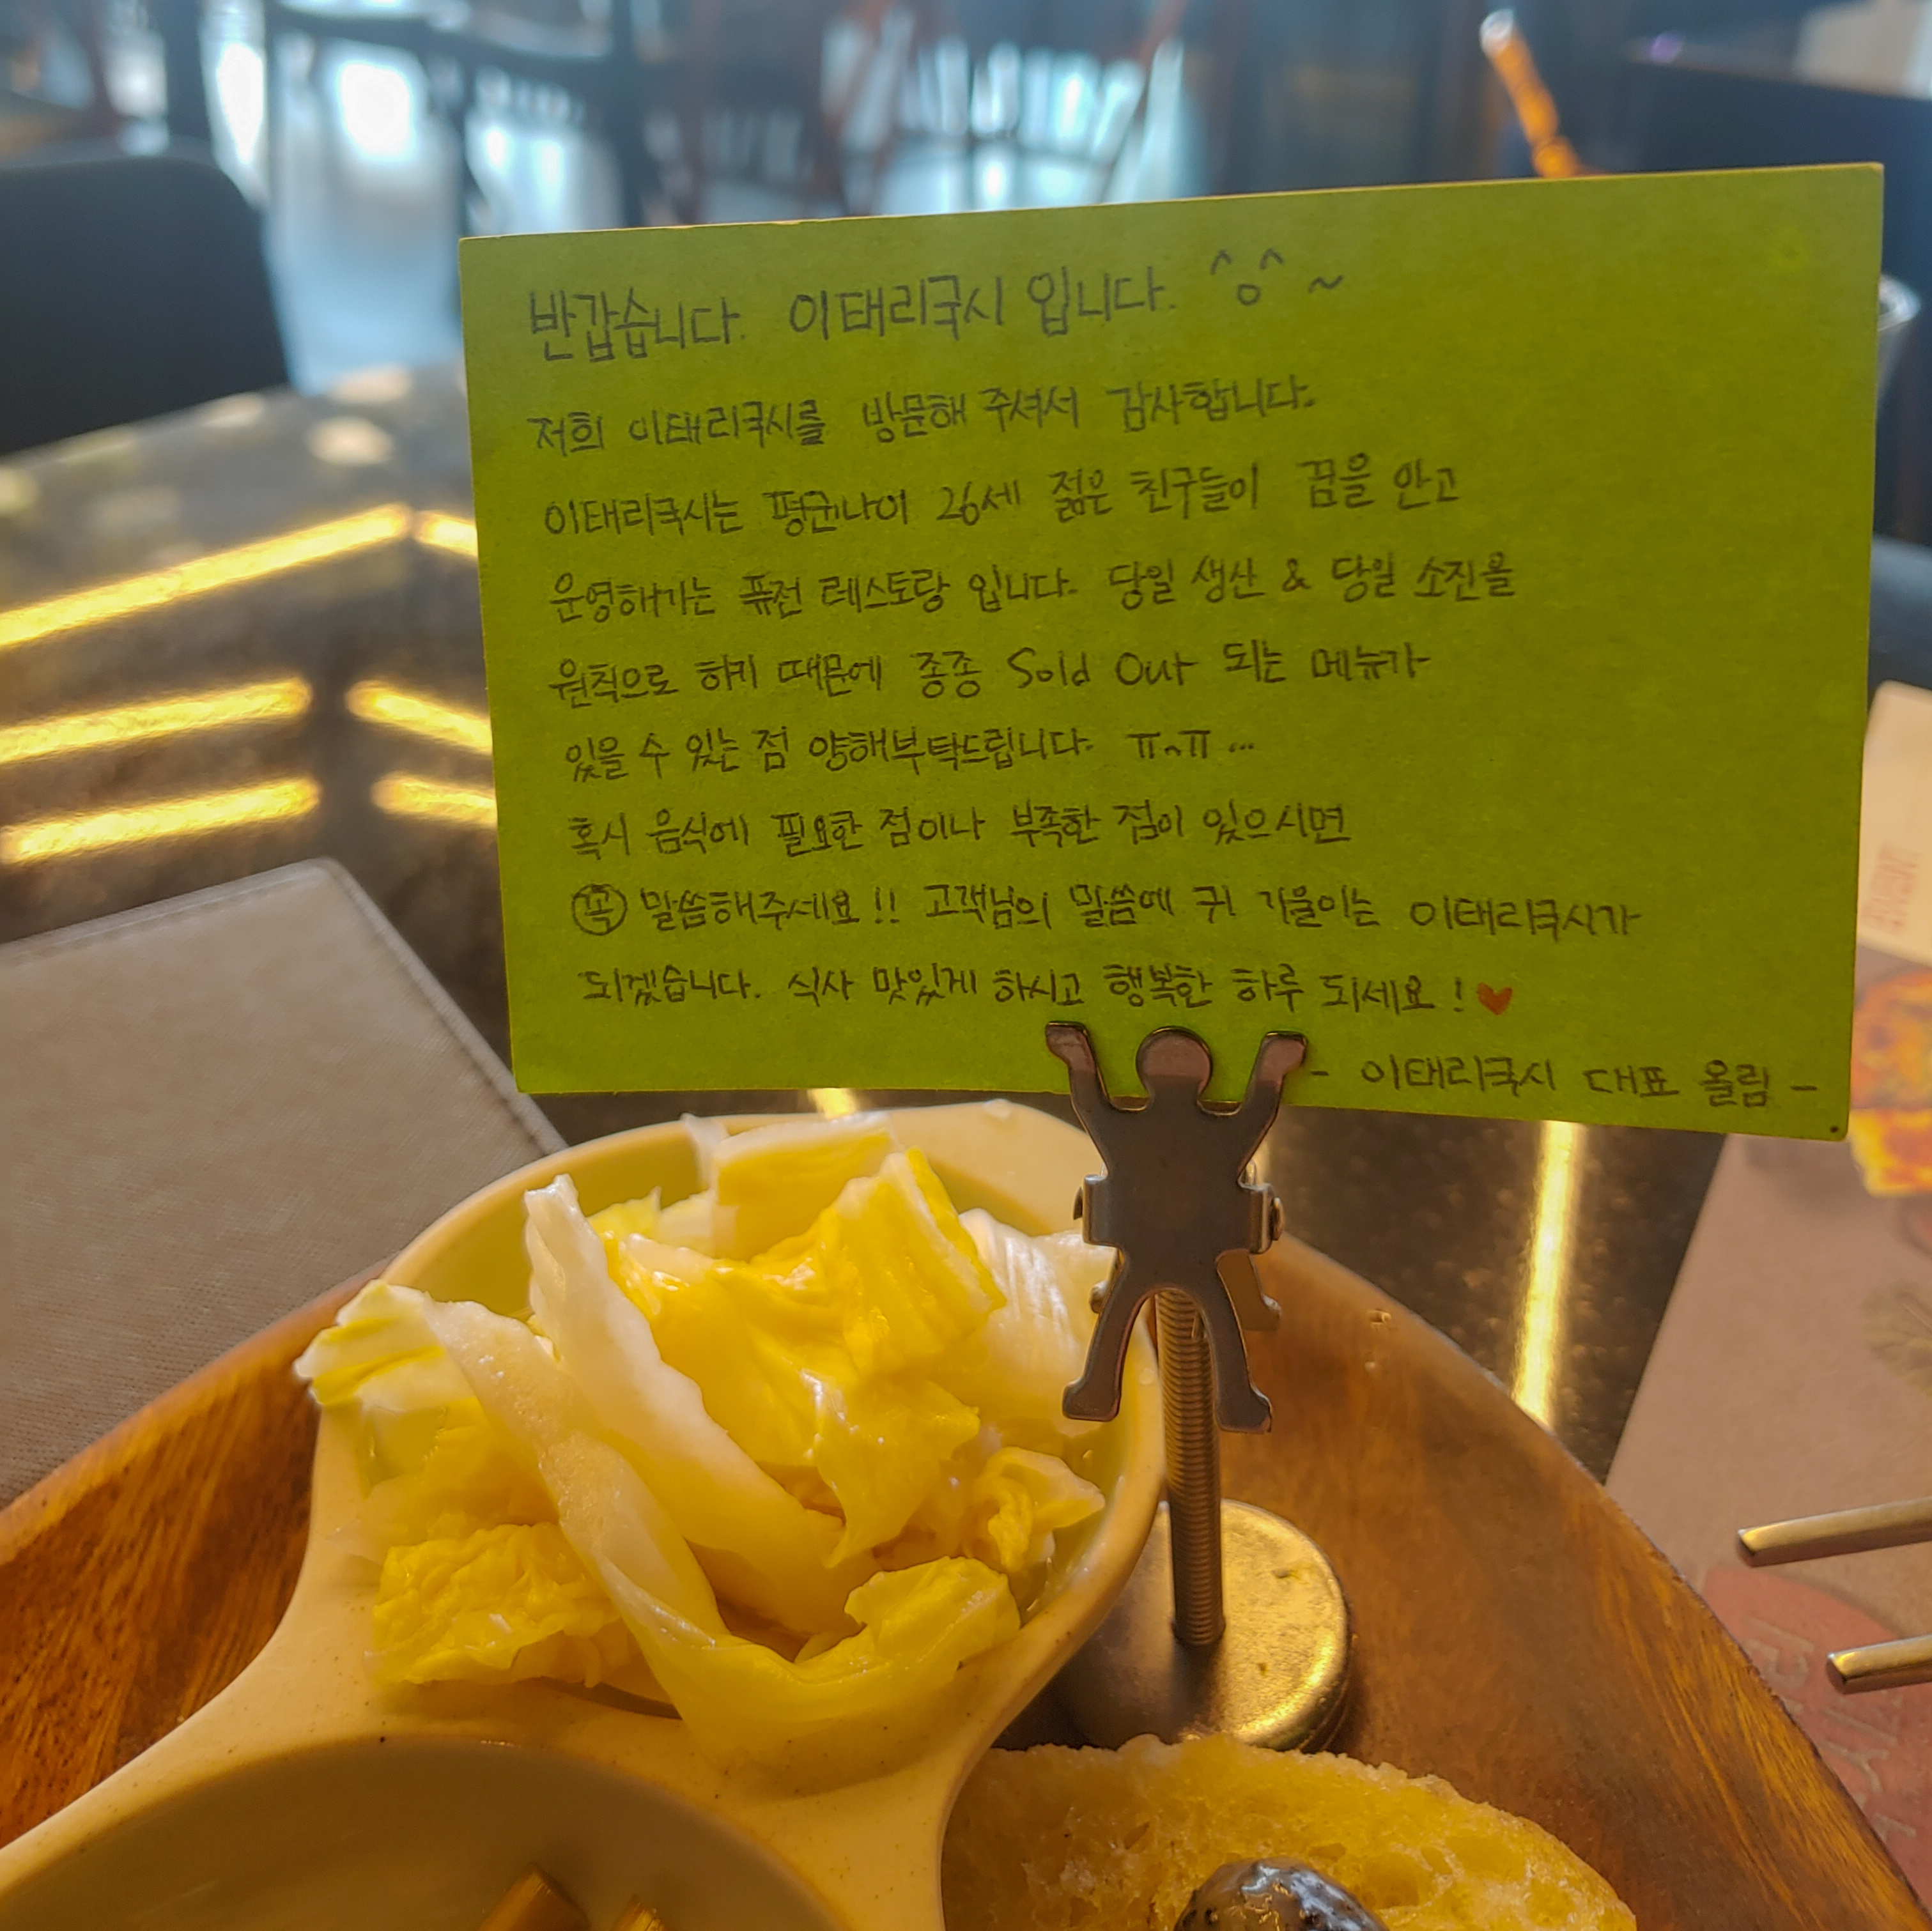 반갑습니다. 이태리국시 입니다. ^o^ ~
저희 이태리국시를 방문해 주셔서 감사합니다.
이태리국시는 평균나이 26세 젊은 친구들이 꿈을 안고
운영해가는 퓨전 레스토랑 입니다. 당일 생산 & 당일 소진을
원칙으로 하기 때문에 종종 Sold Out 되는 메뉴가
있을 수 있는 점 양해부탁드립니다. ㅠㅅㅠ ...
혹시 음식에 필요한 점이나 부족한 점이 있으시면
꼭 말씀해주세요!! 고객님의 말씀에 귀 기울이는 이태리국시가
되겠습니다. 식사 맛있게 하시고 행복한 하루 되세요! ♥
- 이태리국시 대표 올림 -